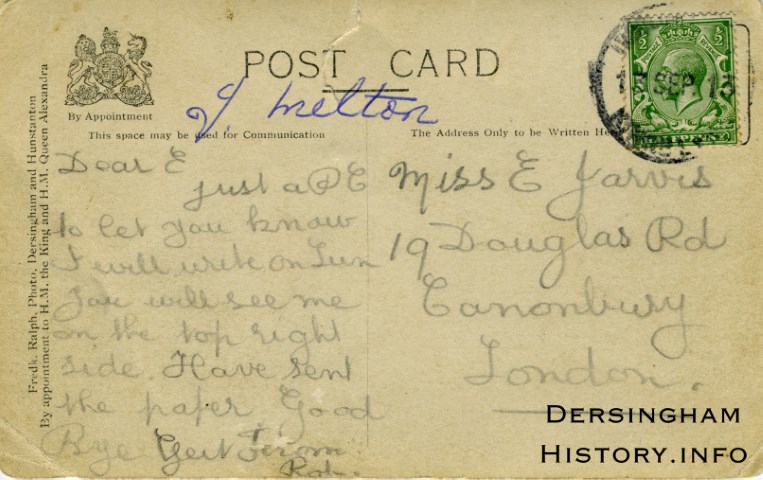 POST CARD
By Appointment
This space may be used for Communication
The Address Only to be Written He
Melton
Fredk. Ralph, Photo, Dersingham and Hunstanton
By appointment to H.M. the King and H.M. Queen Alexandra
½ ½
SEP 13
Dear E
just a P C
to let you know
I will write on Sun
you will see me
on the top right
side. Have sent
the paper Good
Bye Gert From
Miss E Jarvis
19 Douglas Rd
Canonbury
London.
DERSINGHAM
HISTORY.INFO